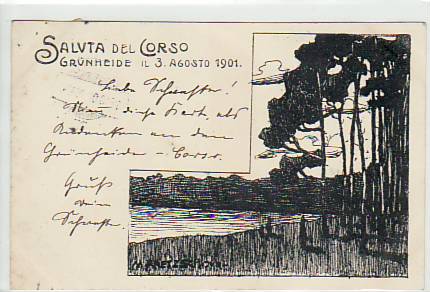 SALUTA DEL CORSO
GRÜNHEIDE IL 3. AGOSTO 1901.
Liebe Schwester!
diese Kart. als
Andenken an den
Grünheider - Corso.
Gruß
Dein
Schwester